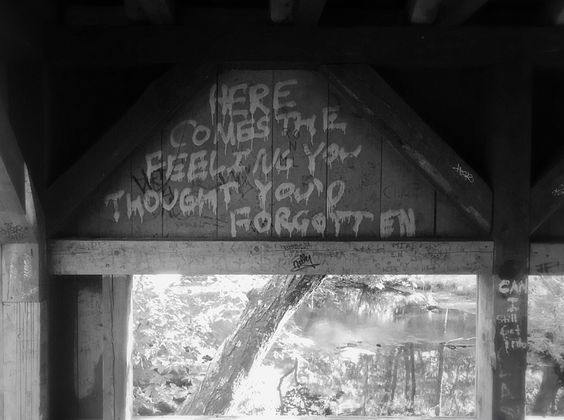 HERE
COMES THE
FEELING YOU
THOUGHT YOU'D
FORGOTTEN
CAN
I
Still
Get